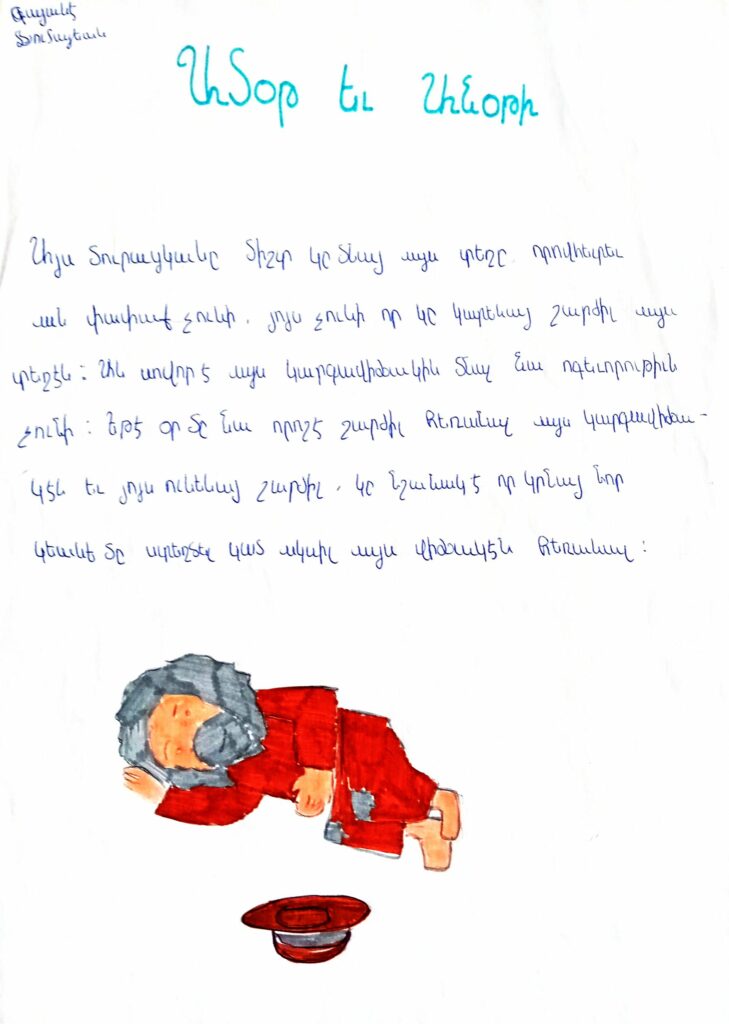 Գայանէ
Ջումայեան
Ամօթ եւ Անօթի
Այս մուրացկանը միշտ կը մնայ այս տեղը որովհետեւ
ան փափաք չունի, յոյս չունի որ կը կարենայ շարժիլ այս
տեղէն: Ան սովոր է այս կարգավիճակին մնալ նա ոգեւորութիւն
չունի: Եթէ օր մը նա որոշէ շարժիլ հեռանալ այս կարգավիճա-
կէն եւ յոյս ունենայ շարժիլ, կը նշանակէ որ կրնայ նոր
կեանք մը ստեղծել կամ սկսիլ այս վիճակէն հեռանալ: